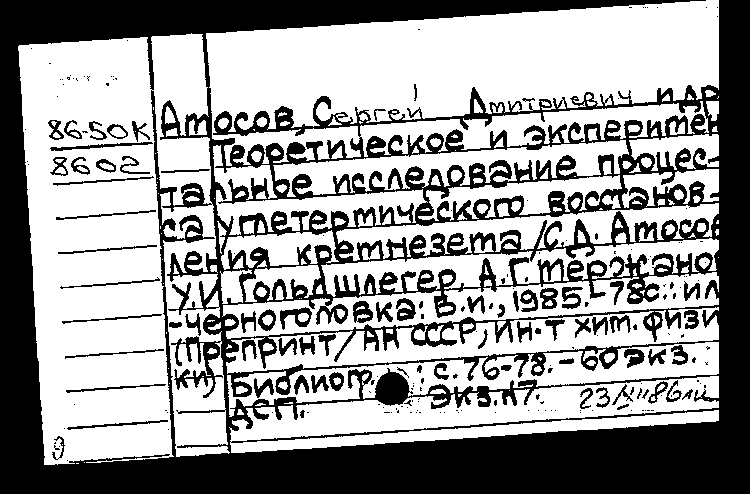 86-50К
8602
Амосов, Сергей Дмитриевич и др
Теоретическое и эксперимен
тальное исследование процес-
са углетермического восстанов-
ления кремнезема / С.Д. Амосов
У.И. Гольдшлегер, А.Г. Мержанов
-Черноголовка: Б.и., 1985.-78с.: ил
(Препринт / АН СССР, Ин-т хим. физи
ки)
Библиогр.: с. 76-78. - 60 экз.
ДСП. Экз. №7. 23/XII 86
9